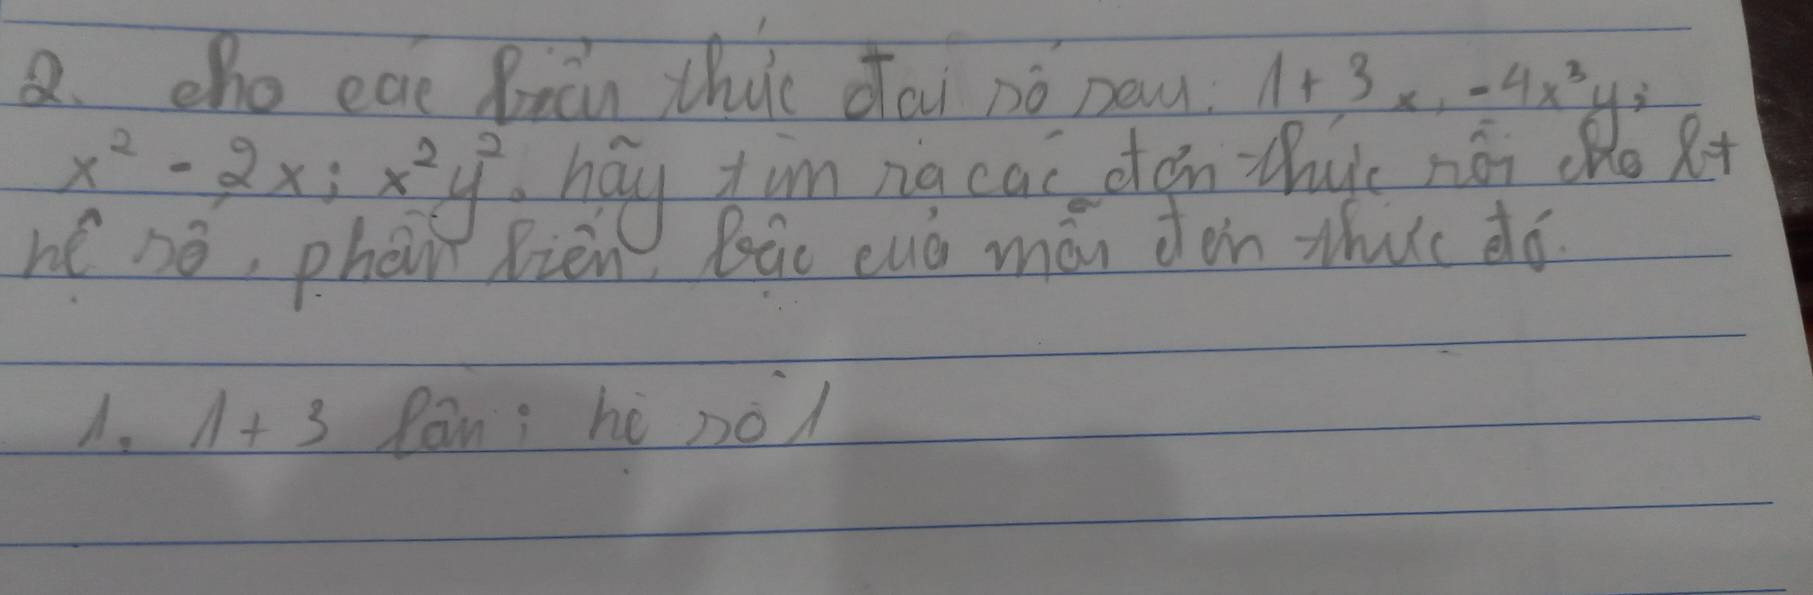 2. cho các biểu thức đại số sau: 1 + 3x, -4x³y;
x² - 2x; x²y². hãy tìm ra các đơn thức rồi cho bt
hệ số, phần biến, bậc của mỗi đơn thức đó.
1. 1 + 3 hệ số 1